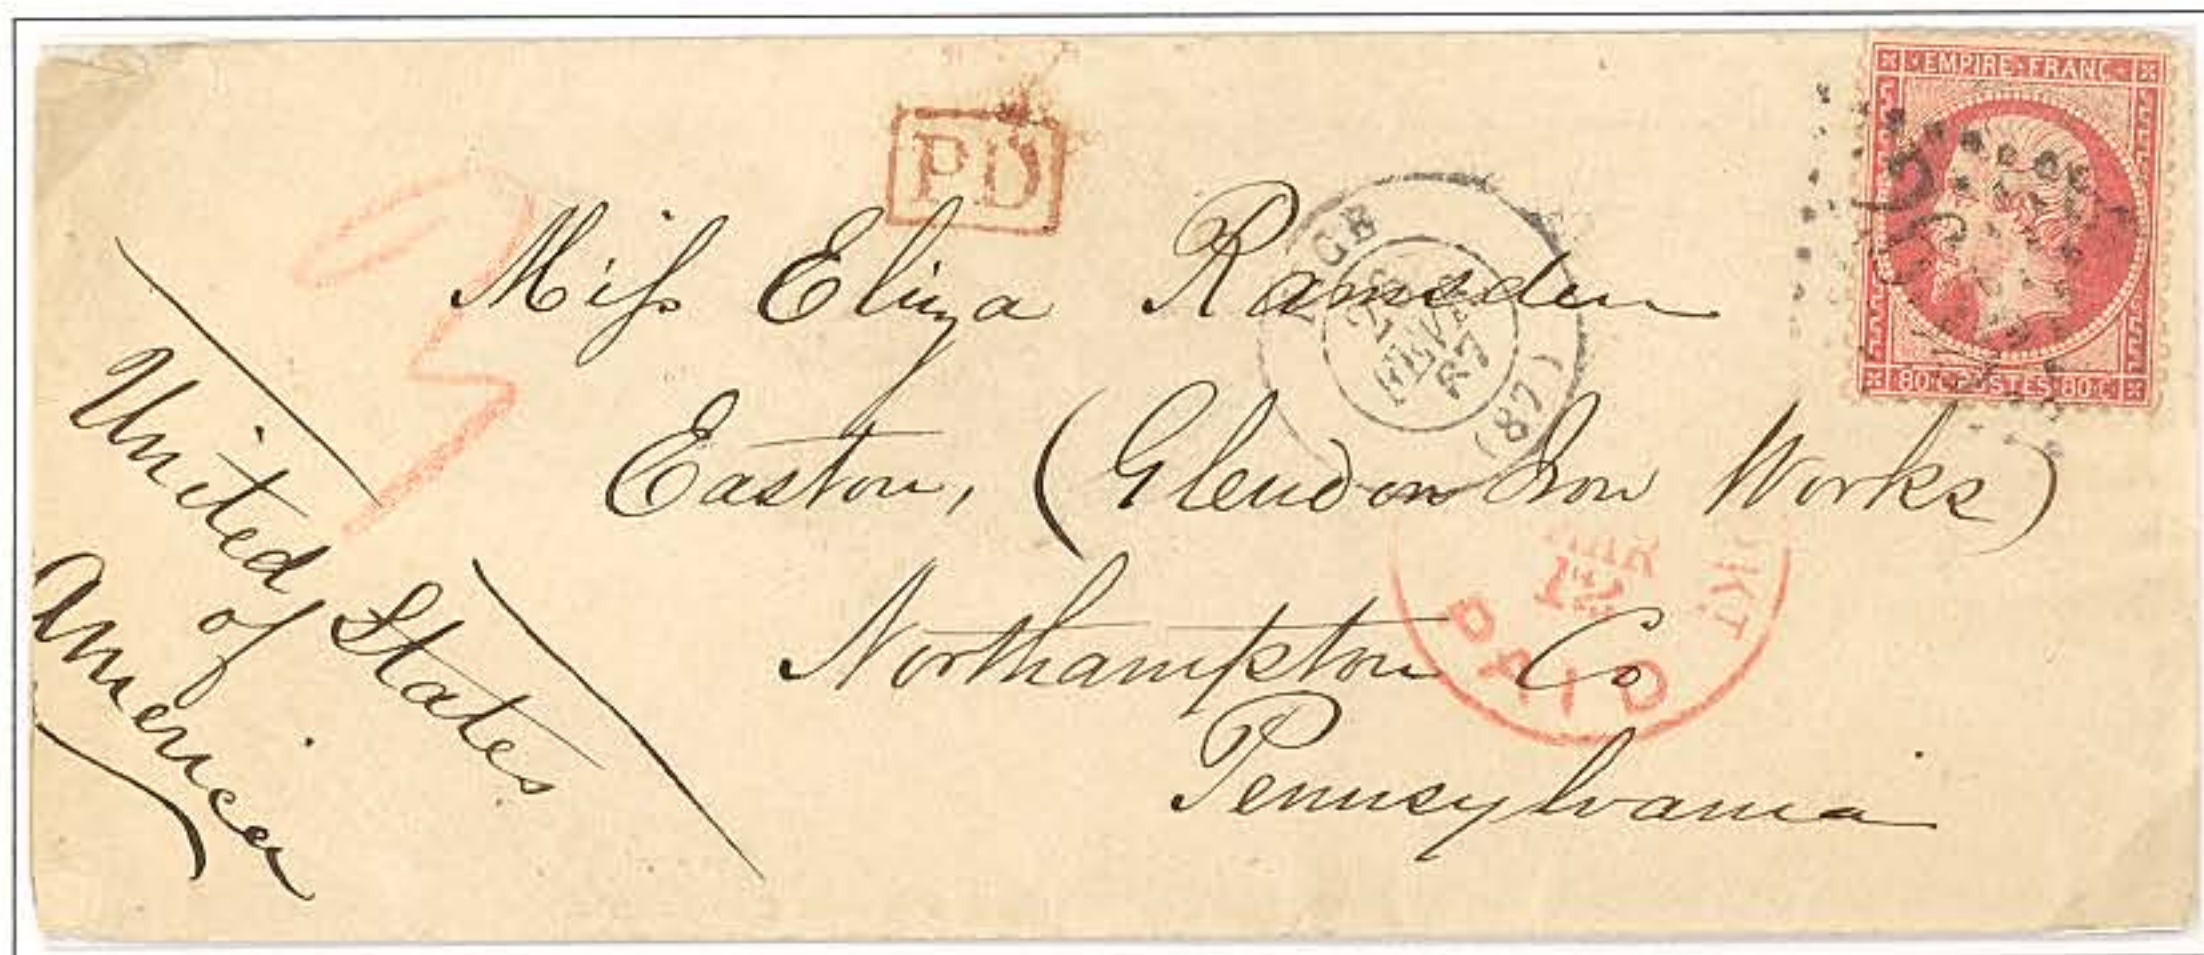 EMPIRE·FRANC
PD
80·C·POSTES·80·C
FEVR
67
(87)
Miss Eliza Ramsden
Easton, (Glendon Iron Works)
Northampton Co
Pennsylvania
United States
of
America
MAR
12
PAID
3